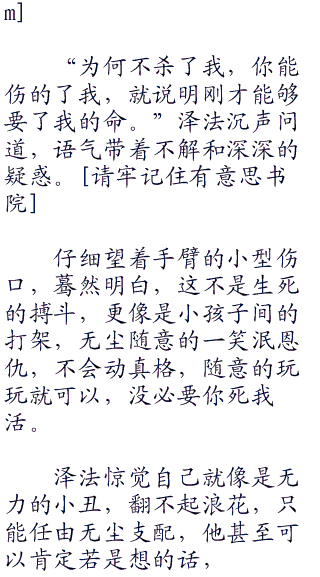 m]
“为何不杀了我，你能
伤的了我，就说明刚才能够
要了我的命。”泽法沉声问
道，语气带着不解和深深的
疑惑。[请牢记住有意思书
院]
仔细望着手臂的小型伤
口，蓦然明白，这不是生死
的搏斗，更像是小孩子间的
打架，无尘随意的一笑泯恩
仇，不会动真格，随意的玩
玩就可以，没必要你死我
活。
泽法惊觉自己就像是无
力的小丑，翻不起浪花，只
能任由无尘支配，他甚至可
以肯定若是想的话，